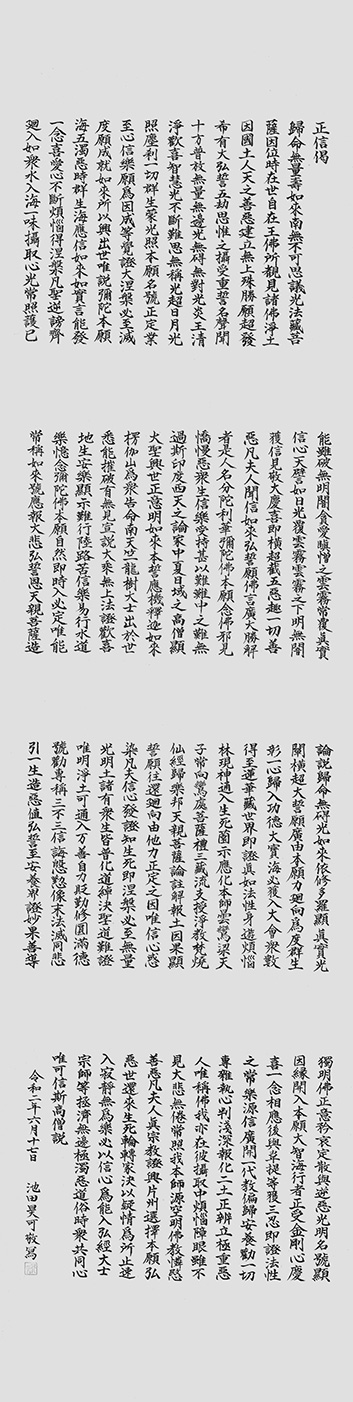 正信偈
歸命無量壽如來南無不可思議光法藏菩
薩因位時在世自在王佛所覩見諸佛淨土
因國土人天之善惡建立無上殊勝願超發
希有大弘誓五劫思惟之攝受重誓名聲聞
十方普放無量無邊光無碍無對光炎王清
淨歡喜智慧光不斷難思無稱光超日月光
照塵刹一切群生蒙光照本願名號正定業
至心信樂願為因成等覺證大涅槃必至滅
度願成就如來所以興出世唯說彌陀本願
海五濁惡時群生海應信如來如實言能發
一念喜愛心不斷煩惱得涅槃凡聖逆謗齊
廻入如衆水入海一味攝取心光常照護已
能雖破無明闇貪愛瞋憎之雲霧常覆真實
信心天譬如日光覆雲霧雲霧之下明無闇
獲信見敬大慶喜即橫超截五惡趣一切善
惡凡夫人聞信如來弘誓願佛言廣大勝解
者是人名分陀利華彌陀佛本願念佛邪見
憍慢惡衆生信樂受持甚以難難中之難無
過斯印度西天之論家中夏日域之高僧顯
大聖興世正意明如來本誓應機釋迦如來
楞伽山為衆告命南天竺龍樹大士出於世
悉能摧破有無見宣說大乘無上法證歡喜
地生安樂顯示難行陸路苦信樂易行水道
樂憶念彌陀佛本願自然即時入必定唯能
常稱如來號應報大悲弘誓恩天親菩薩造
論說歸命無碍光如來依修多羅顯真實光
闡橫超大誓願廣由本願力廻向為度群生
彰一心歸入功德大寶海必獲入大會衆數
得至蓮華藏世界即證真如法性身遊煩惱
林現神通入生死薗示應化本師曇鸞梁天
子常向鸞處菩薩禮三藏流支授淨教焚燒
仙經歸樂邦天親菩薩論註解報土因果顯
誓願往還廻向由他力正定之因唯信心惑
染凡夫信心發證知生死即涅槃必至無量
光明土諸有衆生皆普化道綽決聖道難證
唯明淨土可通入万善自力貶勤修圓滿德
號勸專稱三不三信誨慇懃像末法滅同悲
引一生造惡值弘誓至安養界證妙果善導
獨明佛正意矜哀定散與逆惡光明名號顯
因緣開入本願大智海行者正受金剛心慶
喜一念相應後與韋提等獲三忍即證法性
之常樂源信廣開一代教偏歸安養勸一切
專雜執心判淺深報化二土正辨立極重惡
人唯稱佛我亦在彼攝取中煩惱障眼雖不
見大悲無倦常照我本師源空明佛教憐愍
善惡凡夫人真宗教證興片州選擇本願弘
惡世還來生死輪轉家決以疑情為所止速
入寂靜無為樂必以信心為能入弘經大士
宗師等拯濟無邊極濁惡道俗時衆共同心
唯可信斯高僧說
令和二年六月十七日 池田昊可敬寫